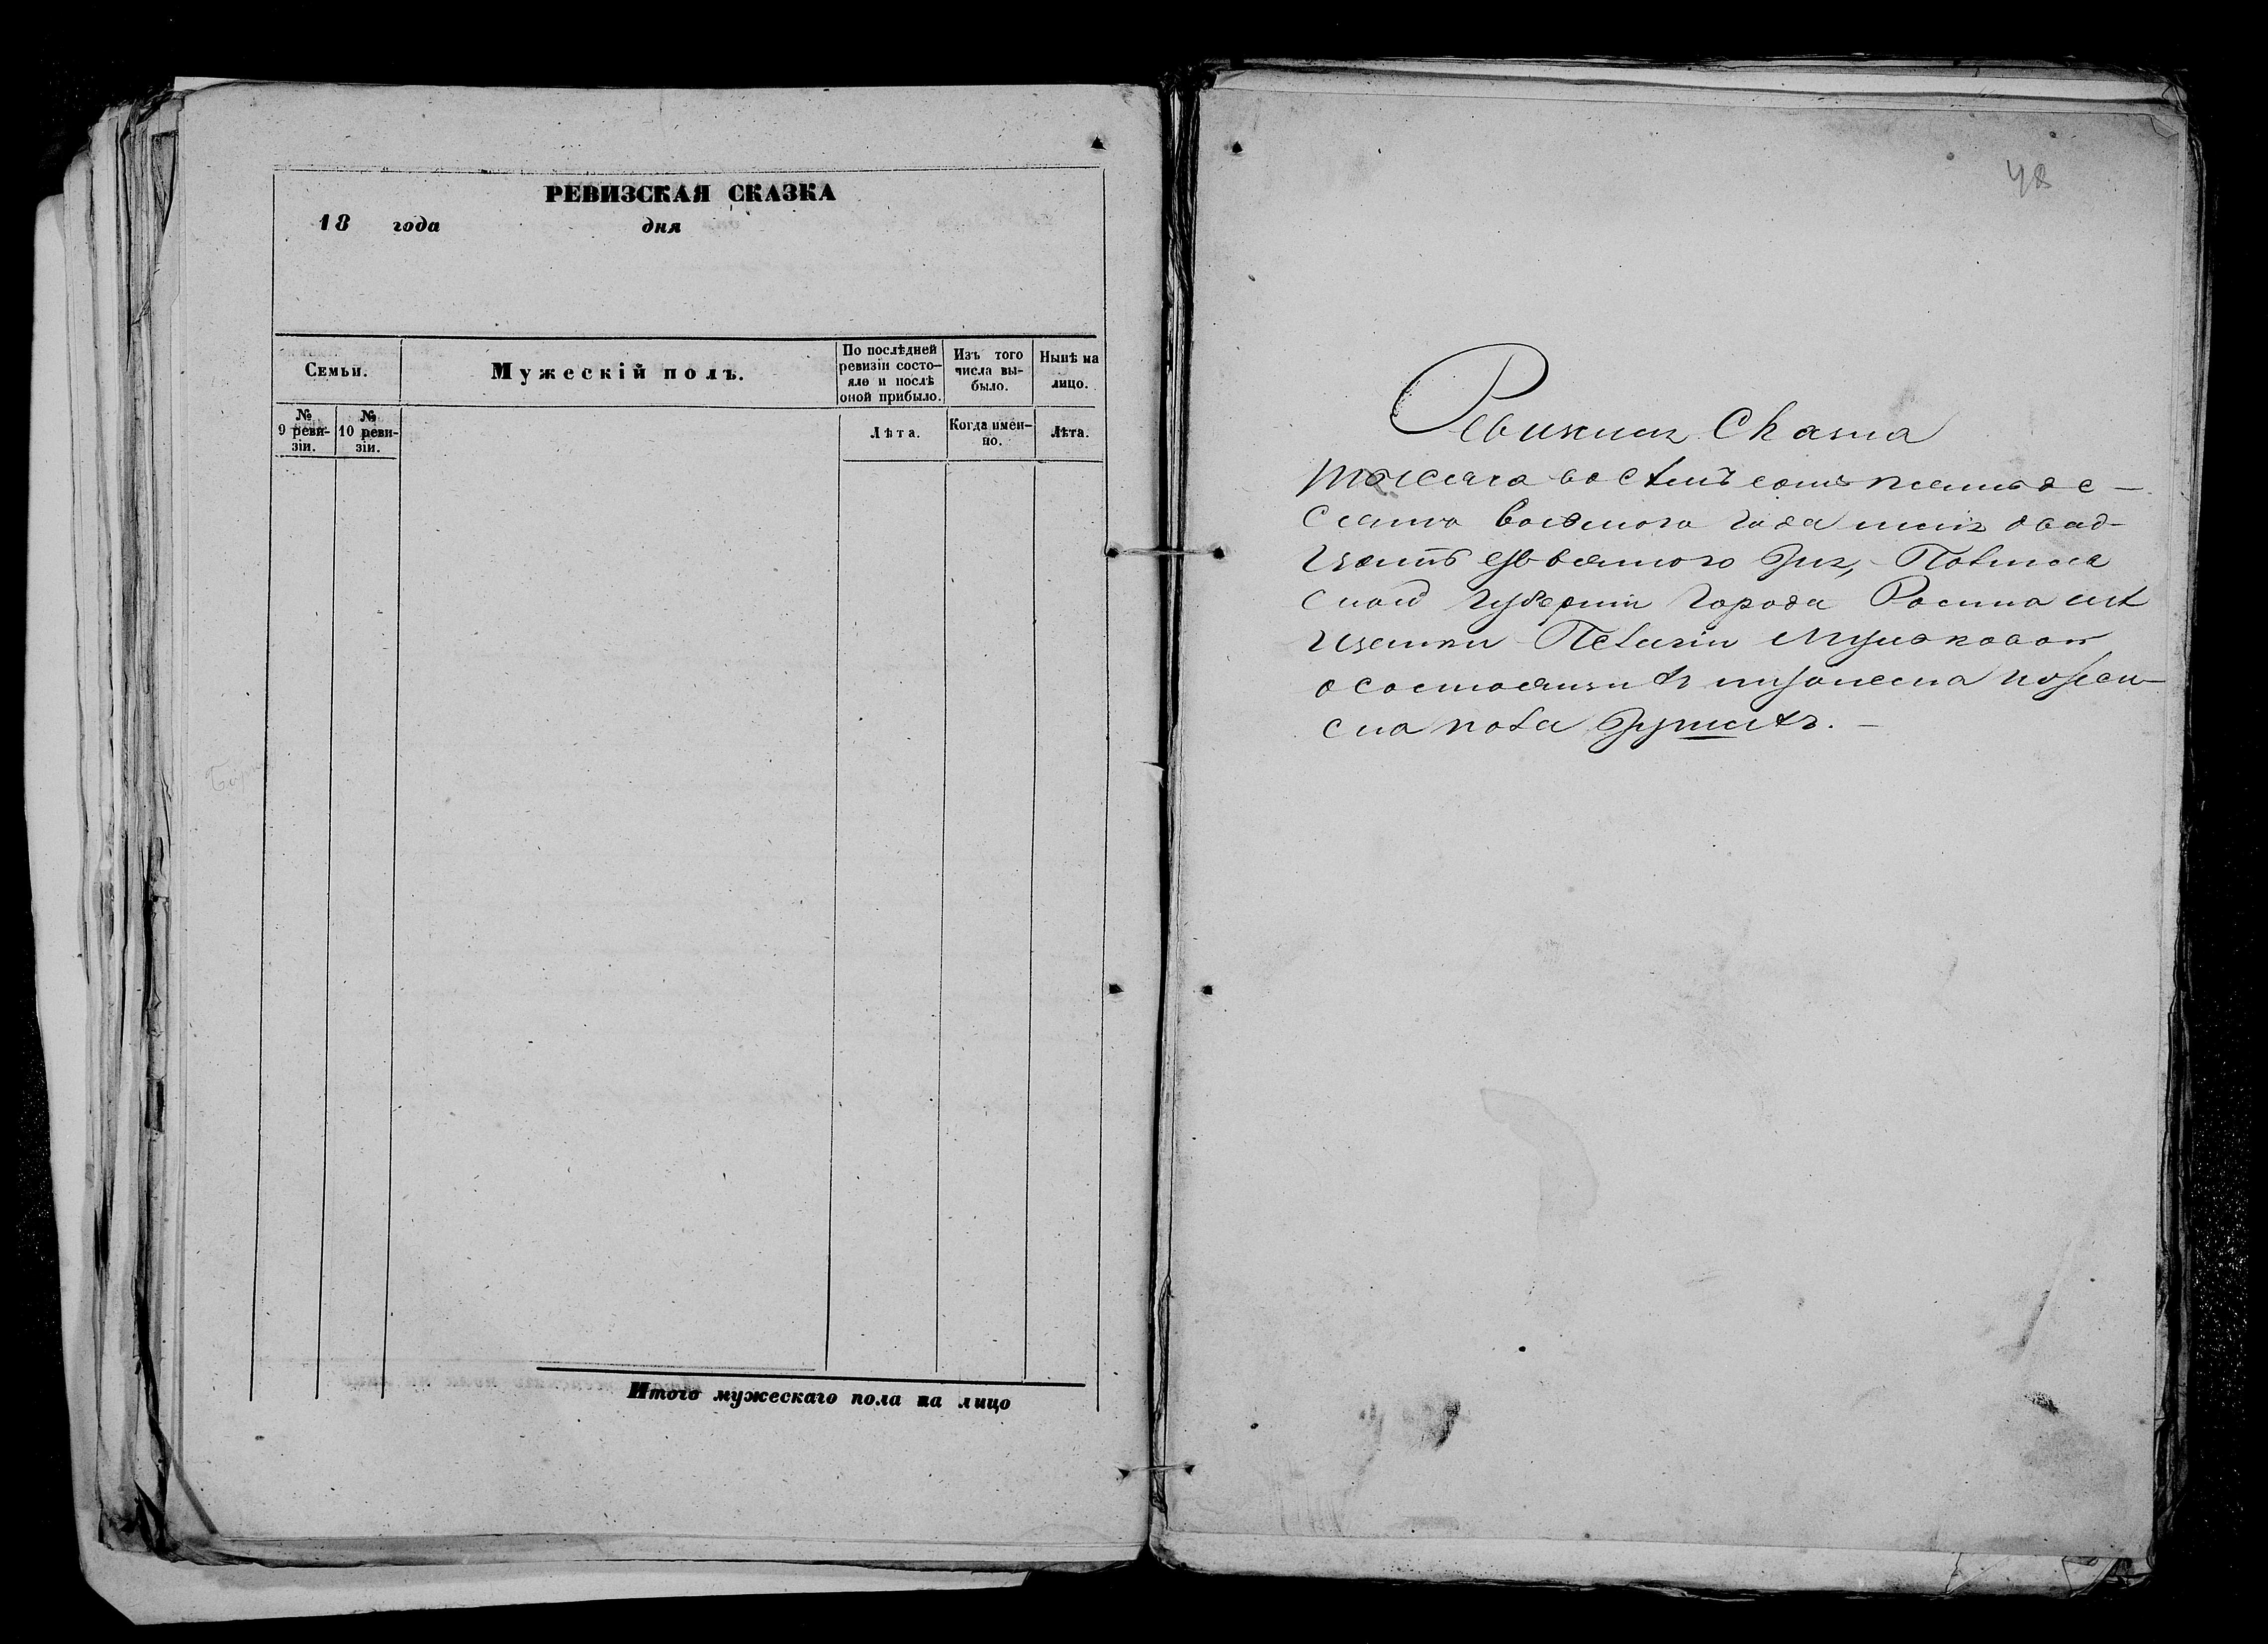 РЕВИЗСКАЯ СКАЗКА
18 года дня
Семьи.
Мужескій полъ.
По послѣдней
ревизіи состо-
яло и послѣ
оной прибыло.
Изъ того
числа вы-
было.
Нынѣ на
лицо.
№
9 реви-
зіи.
№
10 реви-
зіи.
Лѣта.
Когда имен-
но.
Лѣта.
Итого мужескаго пола на лицо
48
Сказка
тысяча восемь сотъ пятьде-
сятъ восмого года маія двад-
цать дня, Полтав
ской Губерніи Города Ромна мѣ
щанки Пелагіи
о состоящихъ мужеска и женс-
ска пола душахъ.